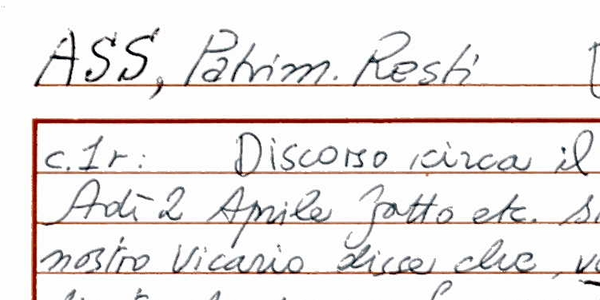 ASS, Patrim. Resti
c.1r: Discorso circa il
Adì 2 Aprile fatto etc.
nostro Vicario disse che